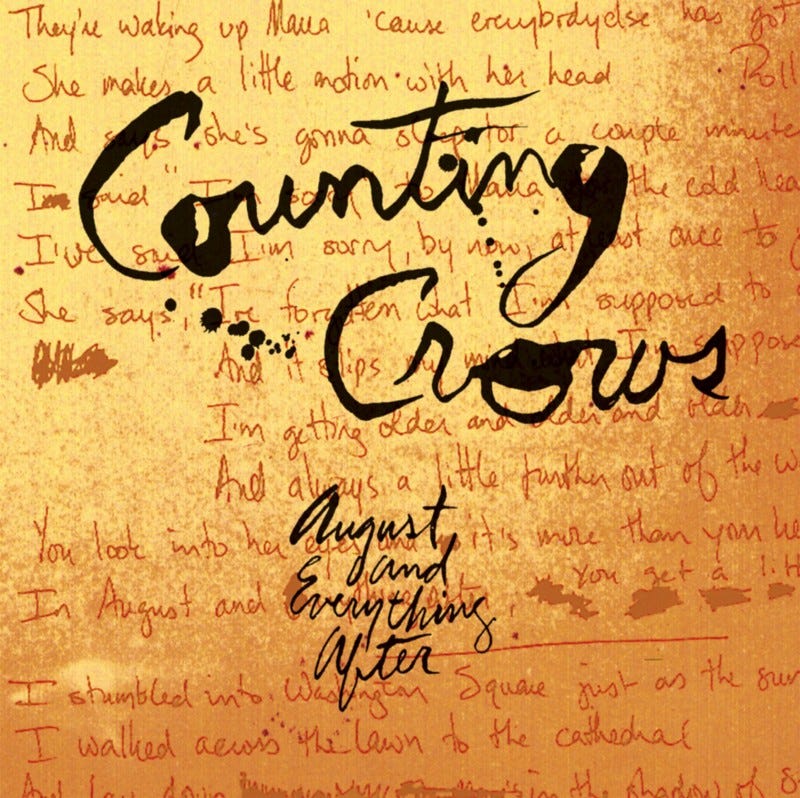 They're waking up Maria 'cause everybodyelse has got
She makes a little motion with her head
Roll
And says she's gonna sleep for a couple minute
I said "I'm sorry" to Maria for the cold hea
I've said I'm sorry, by now, at least once to
She says, "I've forgotten what I'm supposed to
And it slips my mind what I'm suppose
I'm getting older and older and older
And always a little further out of the w
You look into her eyes and it's more than your he
In August and
You get a litt
I stumbled into Washington Square just as the sun
I walked across the lawn to the cathedral
And lay down in the shadow of S
Counting
Crows
August
and
Everything
After